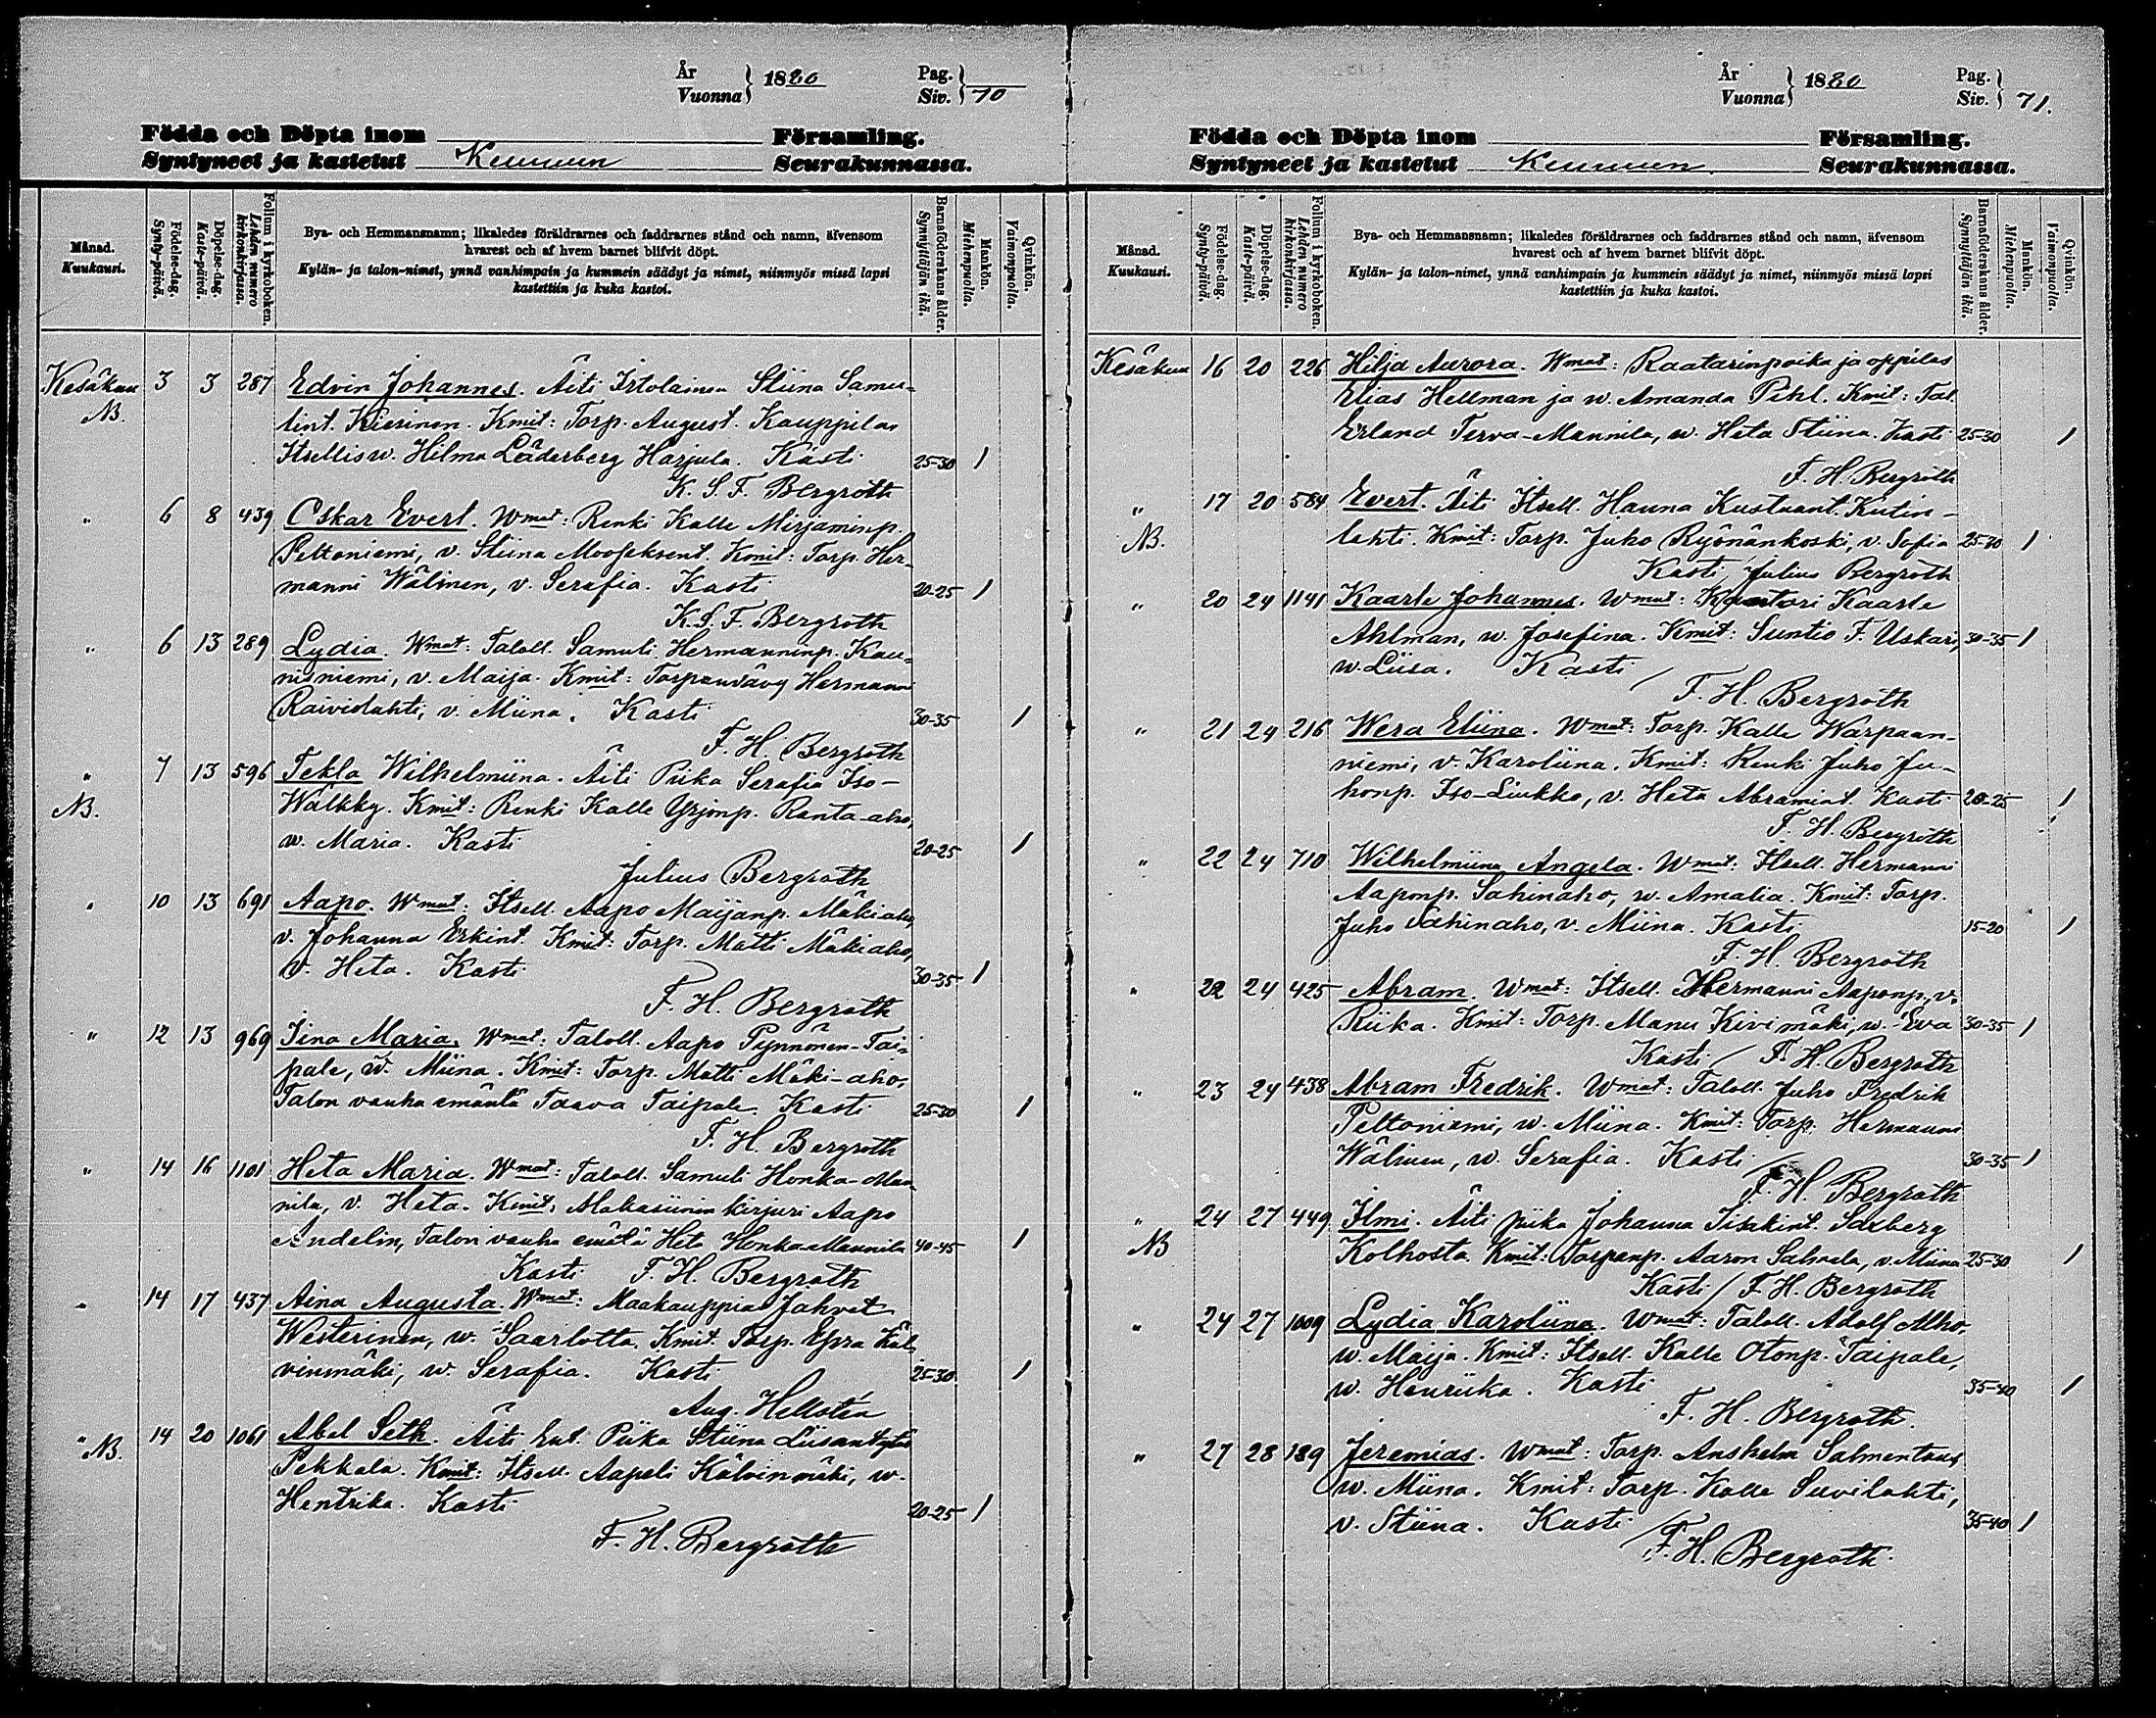 År
Vuonna } 1880
Pag.
Siv. } 70
Födda och Döpta inom Församling.
Syntyneet ja kastetut Keuruun Seurakunnassa.
Månad.
Kuukausi.
Födelse-dag.
Synty-päivä.
Döpelse-dag.
Kaste-päivä.
Folium i kyrkoboken.
Lehden numero kirkonkirjassa.
Bya- och Hemmansnamn; likaledes föräldrarnes och faddrarnes stånd och namn, äfvensom
hvarest och af hvem barnet blifvit döpt.
Kylän- ja talon-nimet, ynnä vanhimpain ja kummein säädyt ja nimet, niinmyös missä lapsi
kastettiin ja kuka kastoi.
Barnaföderskans ålder.
Synnyttäjän ikä.
Mankön.
Miehenpuolta.
Qvinkön.
Vaimonpuolta.
Kesäkuu 3 3 287 Edvin Johannes. Äiti Irtolainen Stiina Samu-
NB. lint. Kiesinen. Kmit: Torp. August. Kauppila,
Itsellis w. Hilma Läderberg Harjula. Kasti 25-30 1
K. S. F. Bergroth
" 6 8 439 Oskar Evert. Wmat: Renki Kalle Mirjaminp.
Peltoniemi, v. Stiina Mooseksent. Kmit: Torp. Her-
manni Wälinen, v. Serafia. Kasti 20-25 1
K. S. F. Bergroth
" 6 13 289 Lydia. Wmat: Taloll. Samuli Hermanninp. Kau-
nisniemi, v. Maija. Kmit: Torpanvävy Hermanni
Raividahti, v. Miina. Kasti 30-35 1
F. H. Bergroth
" 7 13 596 Tekla Wilhelmiina. Äiti Piika Serafia Iso-
NB. Wälkky. Kmit: Renki Kalle Yrjönp. Ranta-aho,
w. Maria. Kasti 20-25 1
Julius Bergroth
" 10 13 691 Aapo. Wmat: Itsell. Aapo Maijanp. Mäkiaho,
v. Johanna Erkint. Kmit: Torp. Matti Mäkiaho,
v. Heta. Kasti 30-35 1
F. H. Bergroth
" 12 13 969 Iina Maria. Wmat: Taloll. Aapo Pynnönen-Tai-
pale, w. Miina. Kmit: Torp. Matti Mäki-aho,
Talon vanha emäntä Taava Taipale. Kasti 25-30 1
F. H. Bergroth
" 14 16 1101 Heta Maria. Wmat: Taloll. Samuli Honka-Man-
nila, v. Heta. Kmit: Makasiinin kirjuri Aapo
Andelin, Talon vanha emäntä Heta Honka-Mannila 40-45 1
Kasti F. H. Bergroth
" 14 17 437 Aina Augusta. Wmat: Maakauppias Jahvet
Westerinen, w. Saarlotta. Kmit. Torp. Esra Käl-
vinmäki, w. Serafia. Kasti 25-30 1
Aug. Hellstén
" NB. 14 20 1061 Abel Seth. Äiti Ent. Piika Stiina Liisantytär
Pekkala. Kmit: Itsell. Aapeli Kälvinmäki, w.
Hentrika. Kasti 20-25 1
F. H. Bergroth
År
Vuonna } 1880
Pag.
Siv. } 71.
Födda och Döpta inom Församling.
Syntyneet ja kastetut Keuruun. Seurakunnassa.
Månad.
Kuukausi.
Födelse-dag.
Synty-päivä.
Döpelse-dag.
Kaste-päivä.
Folium i kyrkoboken.
Lehden numero kirkonkirjassa.
Bya- och Hemmansnamn; likaledes föräldrarnes och faddrarnes stånd och namn, äfvensom
hvarest och af hvem barnet blifvit döpt.
Kylän- ja talon-nimet, ynnä vanhimpain ja kummein säädyt ja nimet, niinmyös missä lapsi
kastettiin ja kuka kastoi.
Barnaföderskans ålder.
Synnyttäjän ikä.
Mankön.
Miehenpuolta.
Qvinkön.
Vaimonpuolta.
Kesäkuu 16 20 226 Hilja Aurora. Wmat: Raatarinpoika ja oppilas
Elias Hellman ja w. Amanda Pihl. Kmit: Tal.
Erland Terva-Mannila, w. Heta Stiina. Kasti 25-30 1
F. H. Bergroth
" 17 20 584 Evert. Äiti Itsell. Hanna Kustaant. Kutin-
NB. lahti. Kmit: Torp. Juho Ryönänkoski, v. Sofia 25-30 1
Kasti / Julius Bergroth
" 20 24 1141 Kaarle Johannes. Wmat: Kanttori Kaarle
Ahlman, w. Josefina. Kmit: Suntio F. Uskari, 30-35 1
w. Liisa. Kasti /
F. H. Bergroth
" 21 24 216 Wera Eliina. Wmat: Torp. Kalle Warpaan-
niemi, v. Karoliina. Kmit: Renki Juho Ju-
honp. Iso-Liukko, v. Heta Abramint. Kasti 20-25 1
F. H. Bergroth
" 22 24 710 Wilhelmiina Angela. Wmat: Itsell. Hermanni
Aaponp. Sahinaho, w. Amalia. Kmit: Torp.
Juho Sahinaho, v. Miina. Kasti 15-20 1
F. H. Bergroth
" 22 24 425 Abram. Wmat: Itsell. Hermanni Aaponp., v.
Riika. Kmit: Torp. Manu Kivimäki, w. Eva 30-35 1
Kasti / F. H. Bergroth
" 23 24 438 Abram Fredrik. Wmat: Taloll. Juho Fredrik
Peltoniemi, w. Miina. Kmit: Torp. Hermanni
Wälinen, w. Serafia. Kasti 30-35 1
F. H. Bergroth
" 24 27 449 Ilmi. Äiti piika Johanna Iisakint. Saxberg
NB Kolhosta. Kmit: Torpanp. Aaron Sahrala, v. Miina 25-30 1
Kasti / F. H. Bergroth
" 24 27 1009 Lydia Karoliina. Wmat: Taloll. Adolf Alho,
w. Maija. Kmit: Itsell. Kalle Otonp. Taipale,
w. Henriika. Kasti 35-40 1
F. H. Bergroth.
" 27 28 189 Jeremias. Wmat: Torp. Anshelm Salmentaus,
w. Miina. Kmit: Torp. Kalle Suvilahti,
v. Stiina. Kasti 35-40 1
F. H. Bergroth.